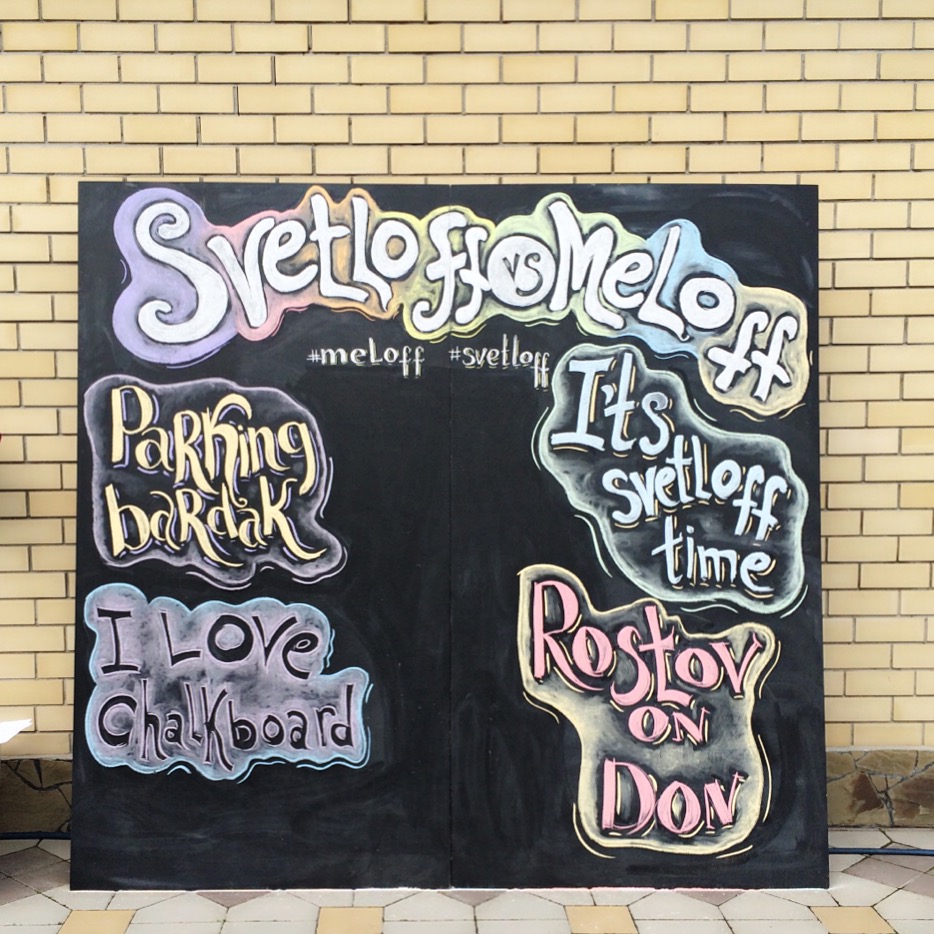 Svetloff vs Meloff
#meloff #svetloff
Parking
bardak
It's
svetloff
time
I Love
Chalkboard
Rostov
on
Don